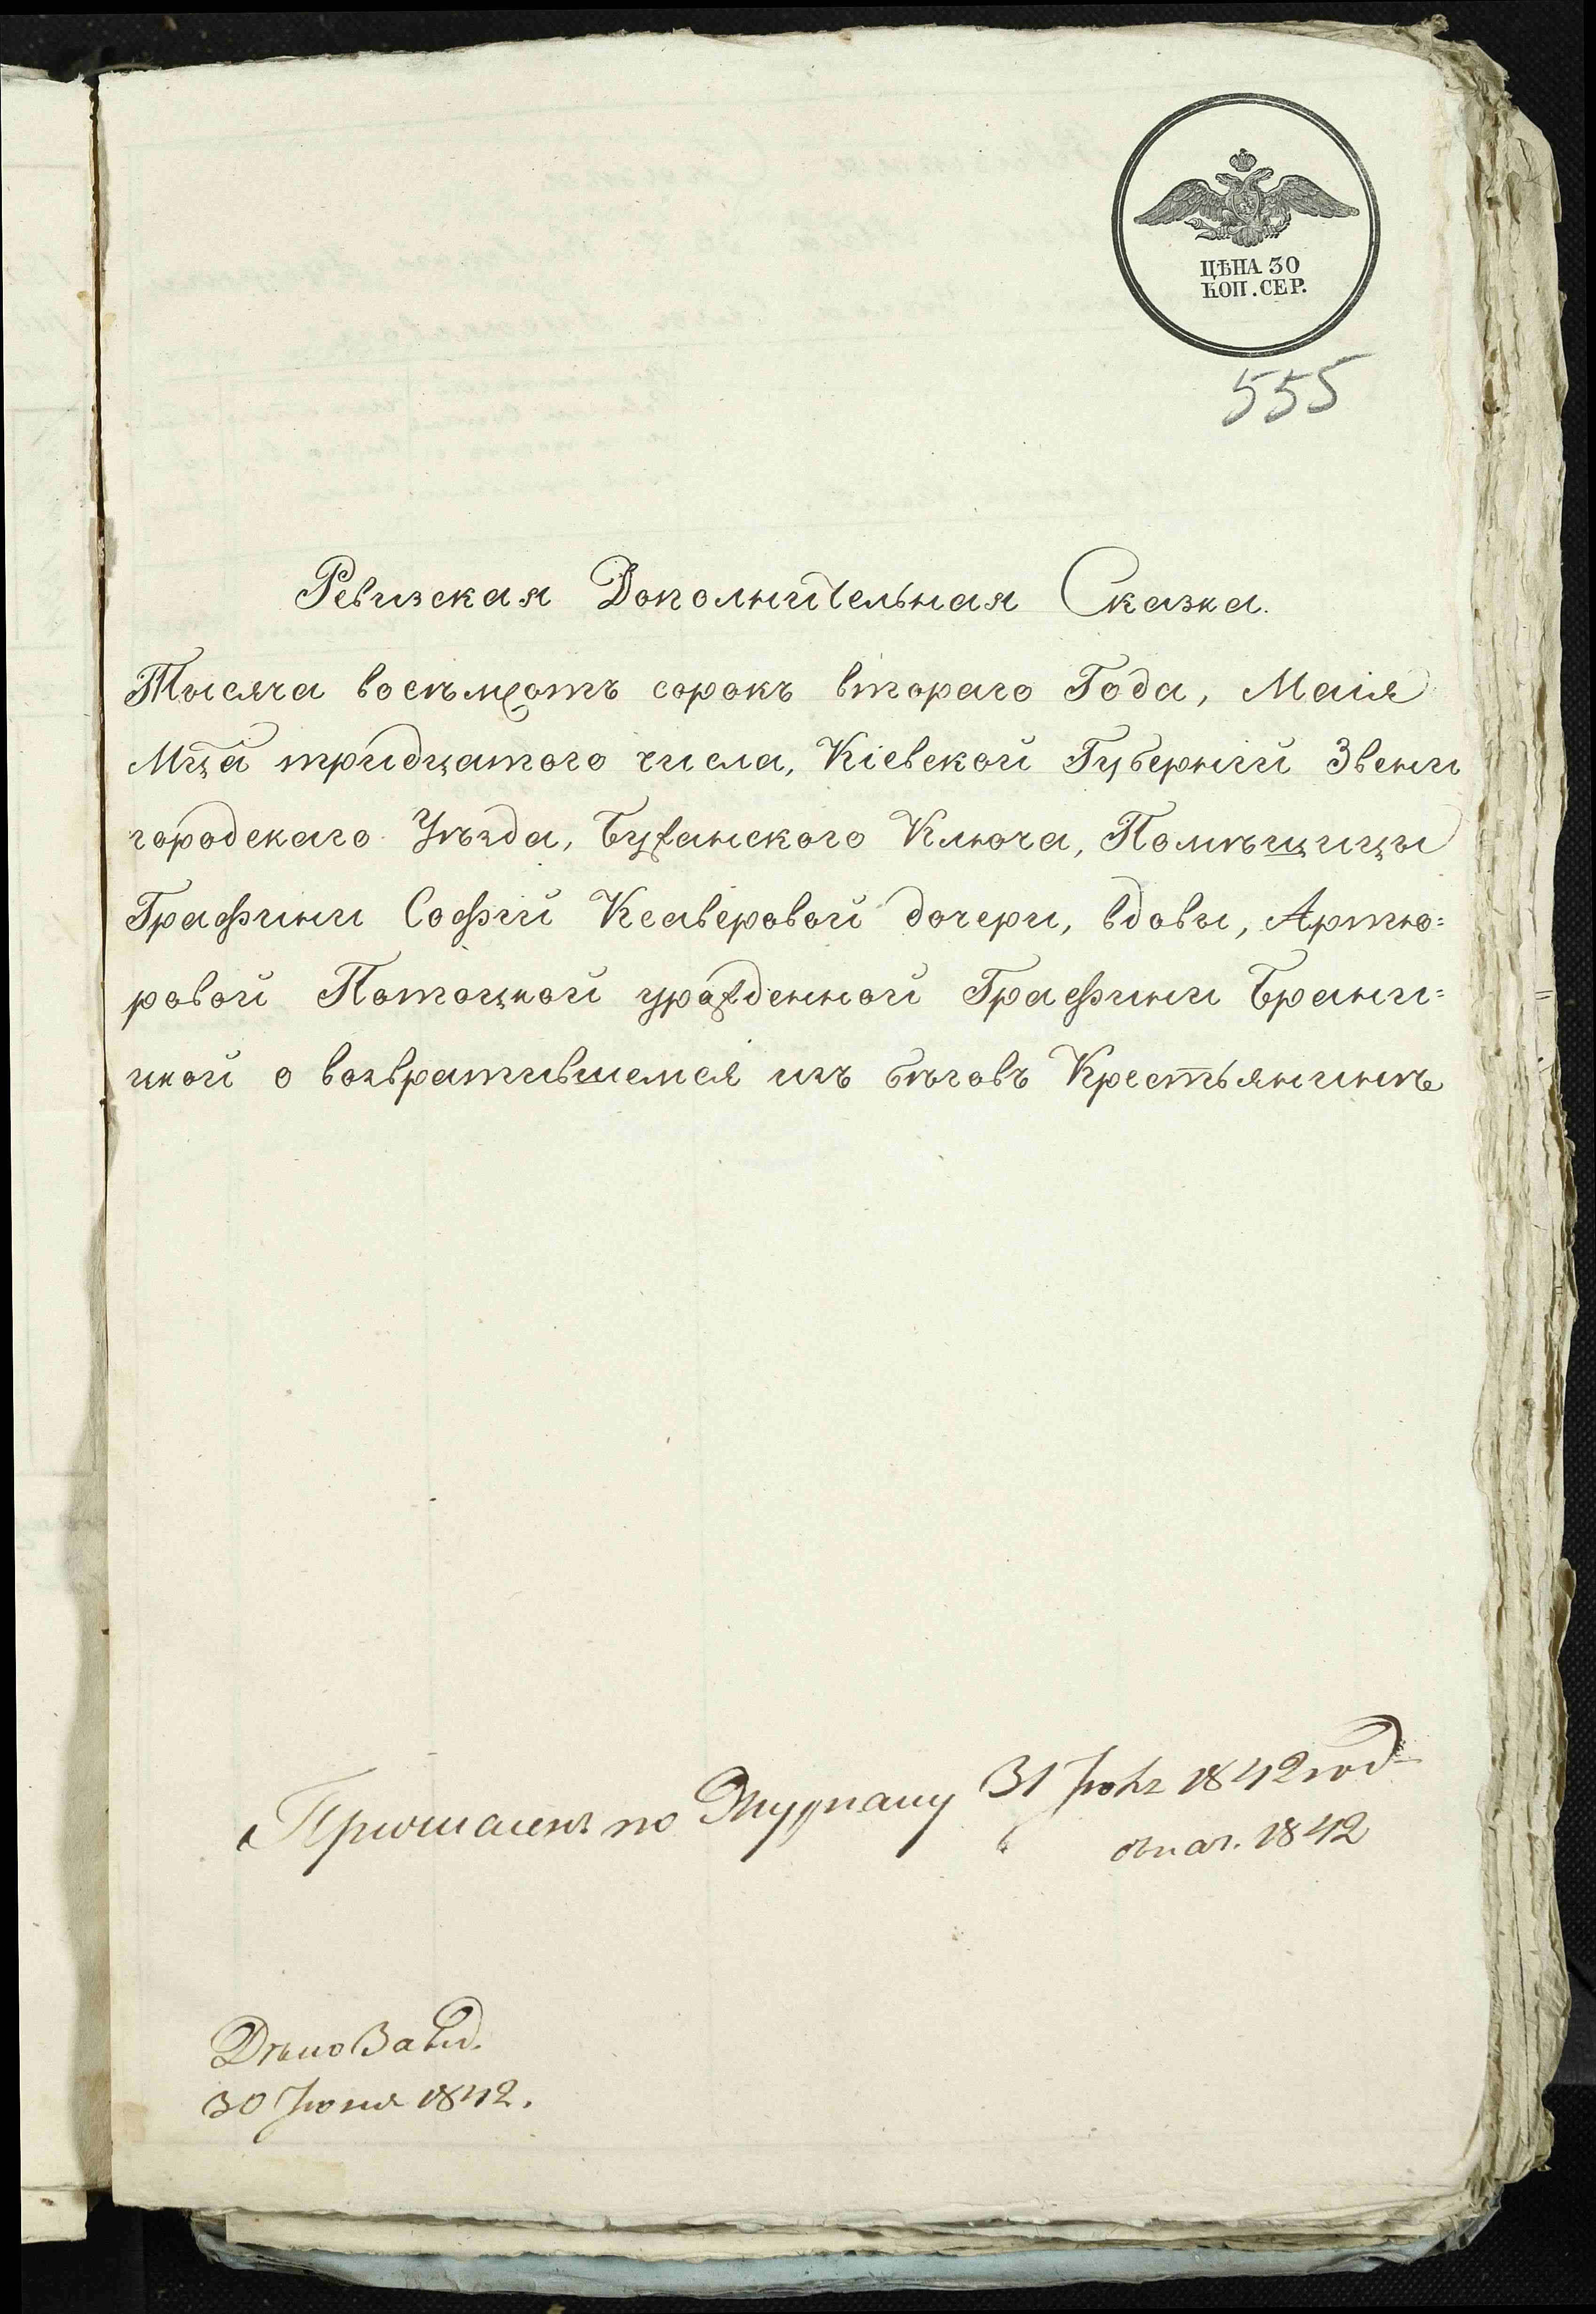 ЦѢНА 30
КОП. СЕР.
555
Ревизская Дополнительная Сказка.
Тысяча восѣмсотъ сорокъ втораго Года, Маія
Мца тридцатого числа, Кіевской Губерніи Звени
городскаго Уѣзда, Бужанского Ключа, Помѣщицы
Графини Софіи Ксаверовой дочери, вдовы, Артю=
ровой Потоцкой урожденной Графини Брани=
цкой о возвратившемся изъ бѣговъ Крестьянинѣ
по Журналу 31 1842 год
1842
30 Іюня 1842.